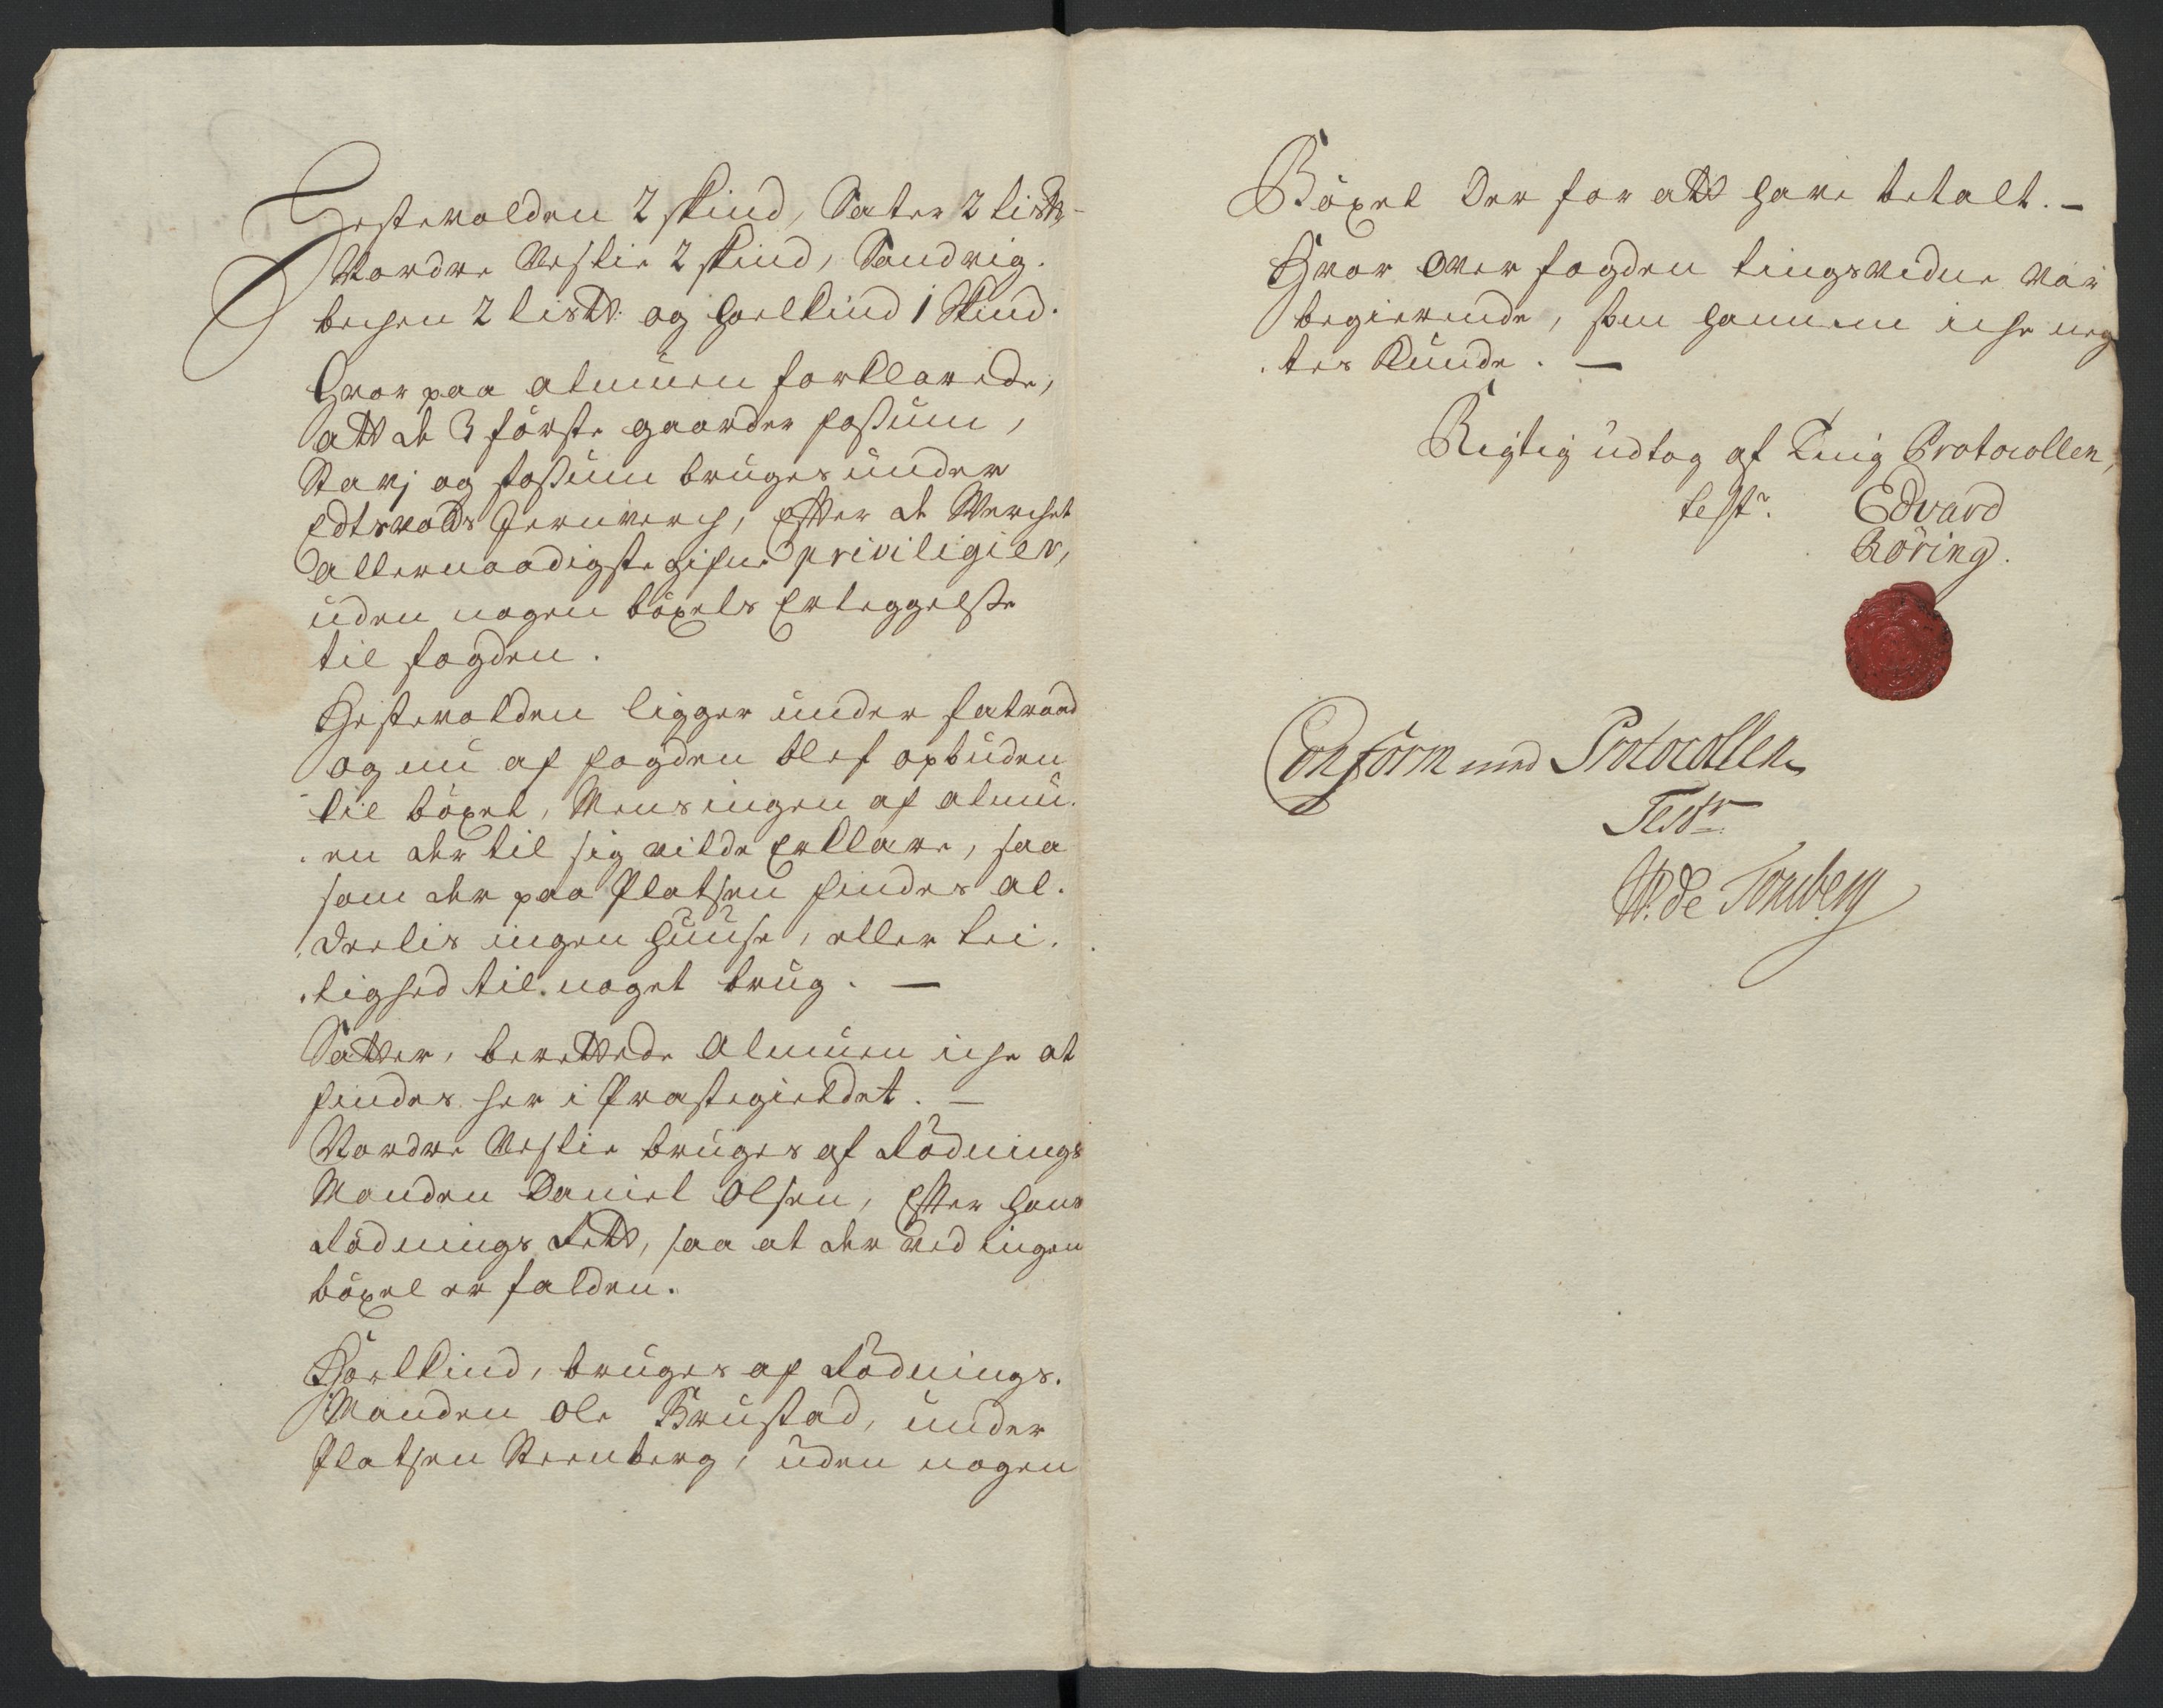 Hestevolden 2 skind, Sater 2 lis℔
Nordre Veslie 2 skind, Sandvig-
bechen 2 lis℔: og Hoelkind 1 Skind.
Hvor paa almuen forklarede,
att de 3 förste gaarder
og Fossum bruges under
Edtsvolds Jernverch, Efter de Verchet
allernaadigste gifne privilegier,
uden nogen böxels Erleggelsse
til fogden.
Hestevolden ligger under
og nu af fogden blef opbuden
til böxel, Mens ingen af almu-
en der til sig vilde Erklare, saa
som der paa Platsen findes al-
deelis ingen huuse, eller lei-
lighed til noget brug. —
Satter, berettede Almuen iche at
findes her i Prastegieldet. —
Nordre Veslie bruges af Rödnings
Manden Daniel Olsen, Efter hans
Rödnings Sedd, saa at der ved ingen
böxel er falden.
Hoelkind, bruges af Rödnings-
Manden Ole Brustad, under
Platsen Steenberg, uden nogen
Böxel der for att have betalt. —
Hvor over fogden tingsvidne var
begierende, som hannem iche neg
tes kunde. —
Rigtig udtog af Ting Protocollen,
test: Edvard
Röring.
Conform med Protocollen
Test:
W. de Tonsberg